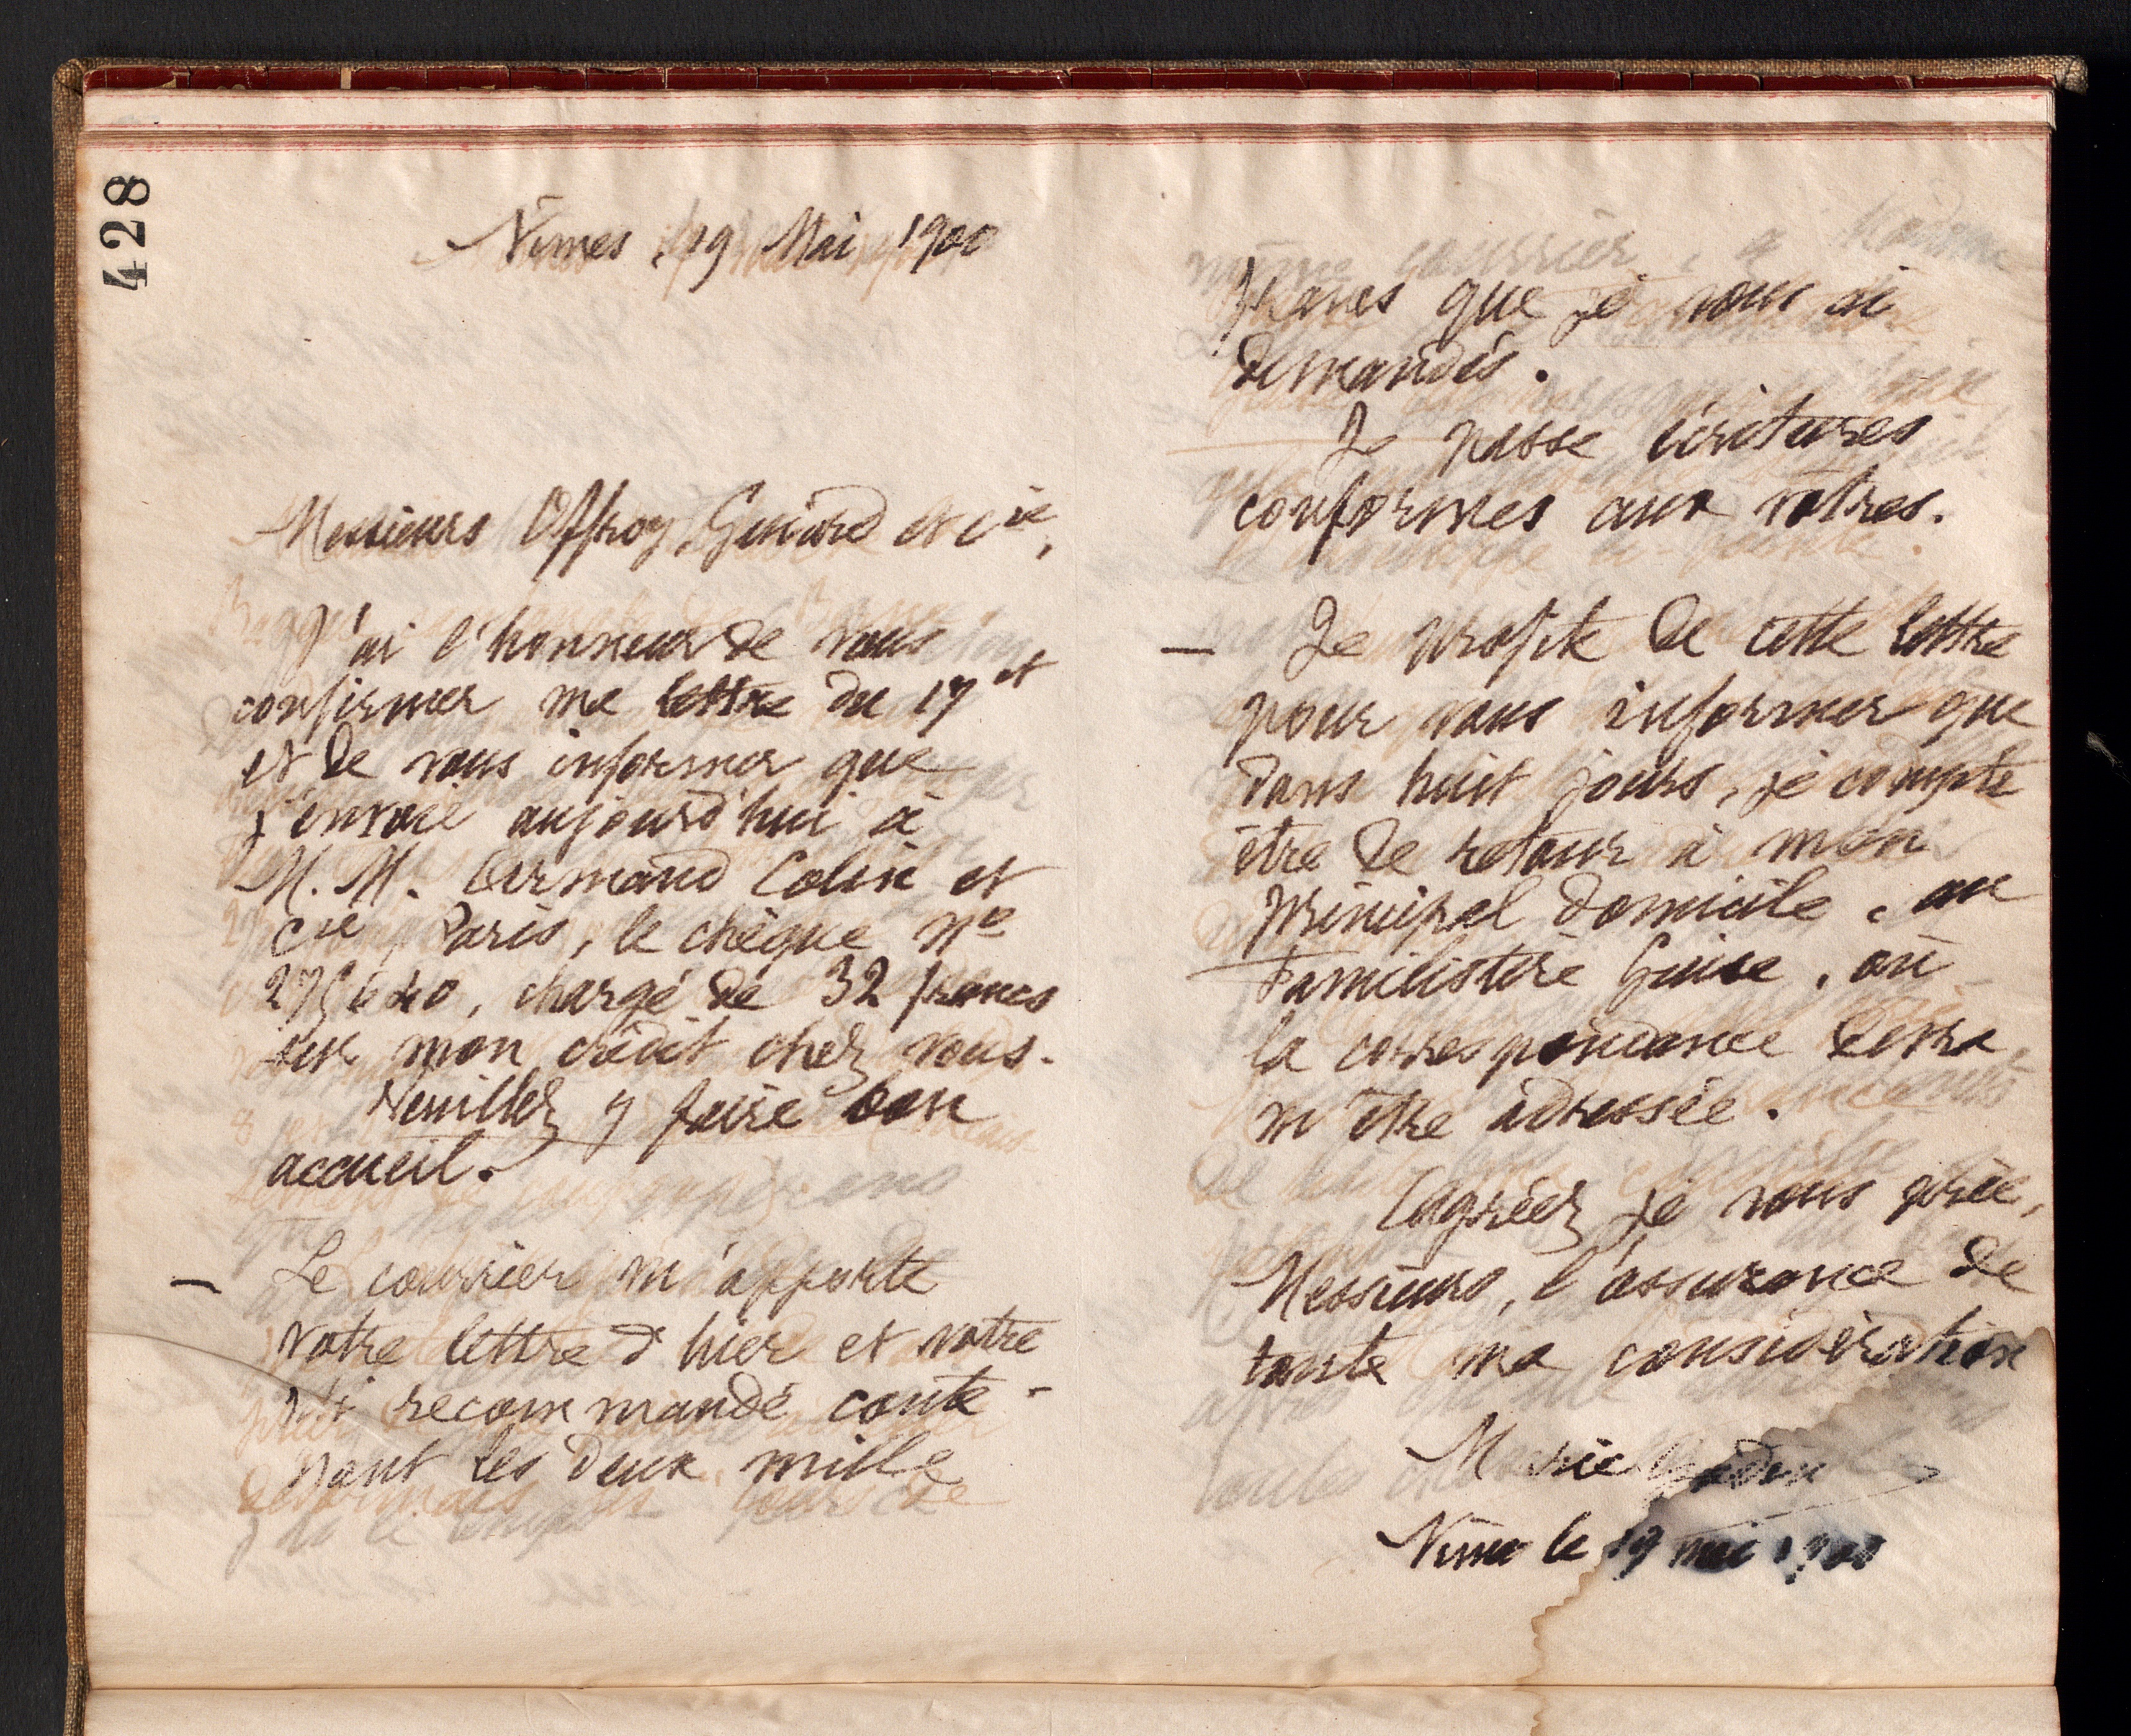 428
Nîmes, 19 Mai 1900
Messieurs Offroy, Guiard et Cie,
J'ai l'honneur de vous
confirmer ma lettre du 17 ct
et de vous informer que
j'envoie aujourd'hui à
M. M. Armand Colin et
Cie Paris, le chèque No
chargé de 32 francs
sur mon crédit chez vous.
Veuillez y faire bon
accueil.
— Le courrier m'apporte
votre lettre d'hier et votre
pli recommandé conte-
nant les deux mille
francs que je vous ai
demandés.
Je passe écritures
conformes aux vôtres.
— Je profite de cette lettre
pour vous informer que
dans huit jours, je compte
être de retour à mon
principal domicile, au
Familistère Guise, où
la correspondance devra
m'être adressée.
Agréez, je vous prie,
Messieurs, l'assurance de
toute ma considération
Marie Godin
Nîmes le 19 mai 1900